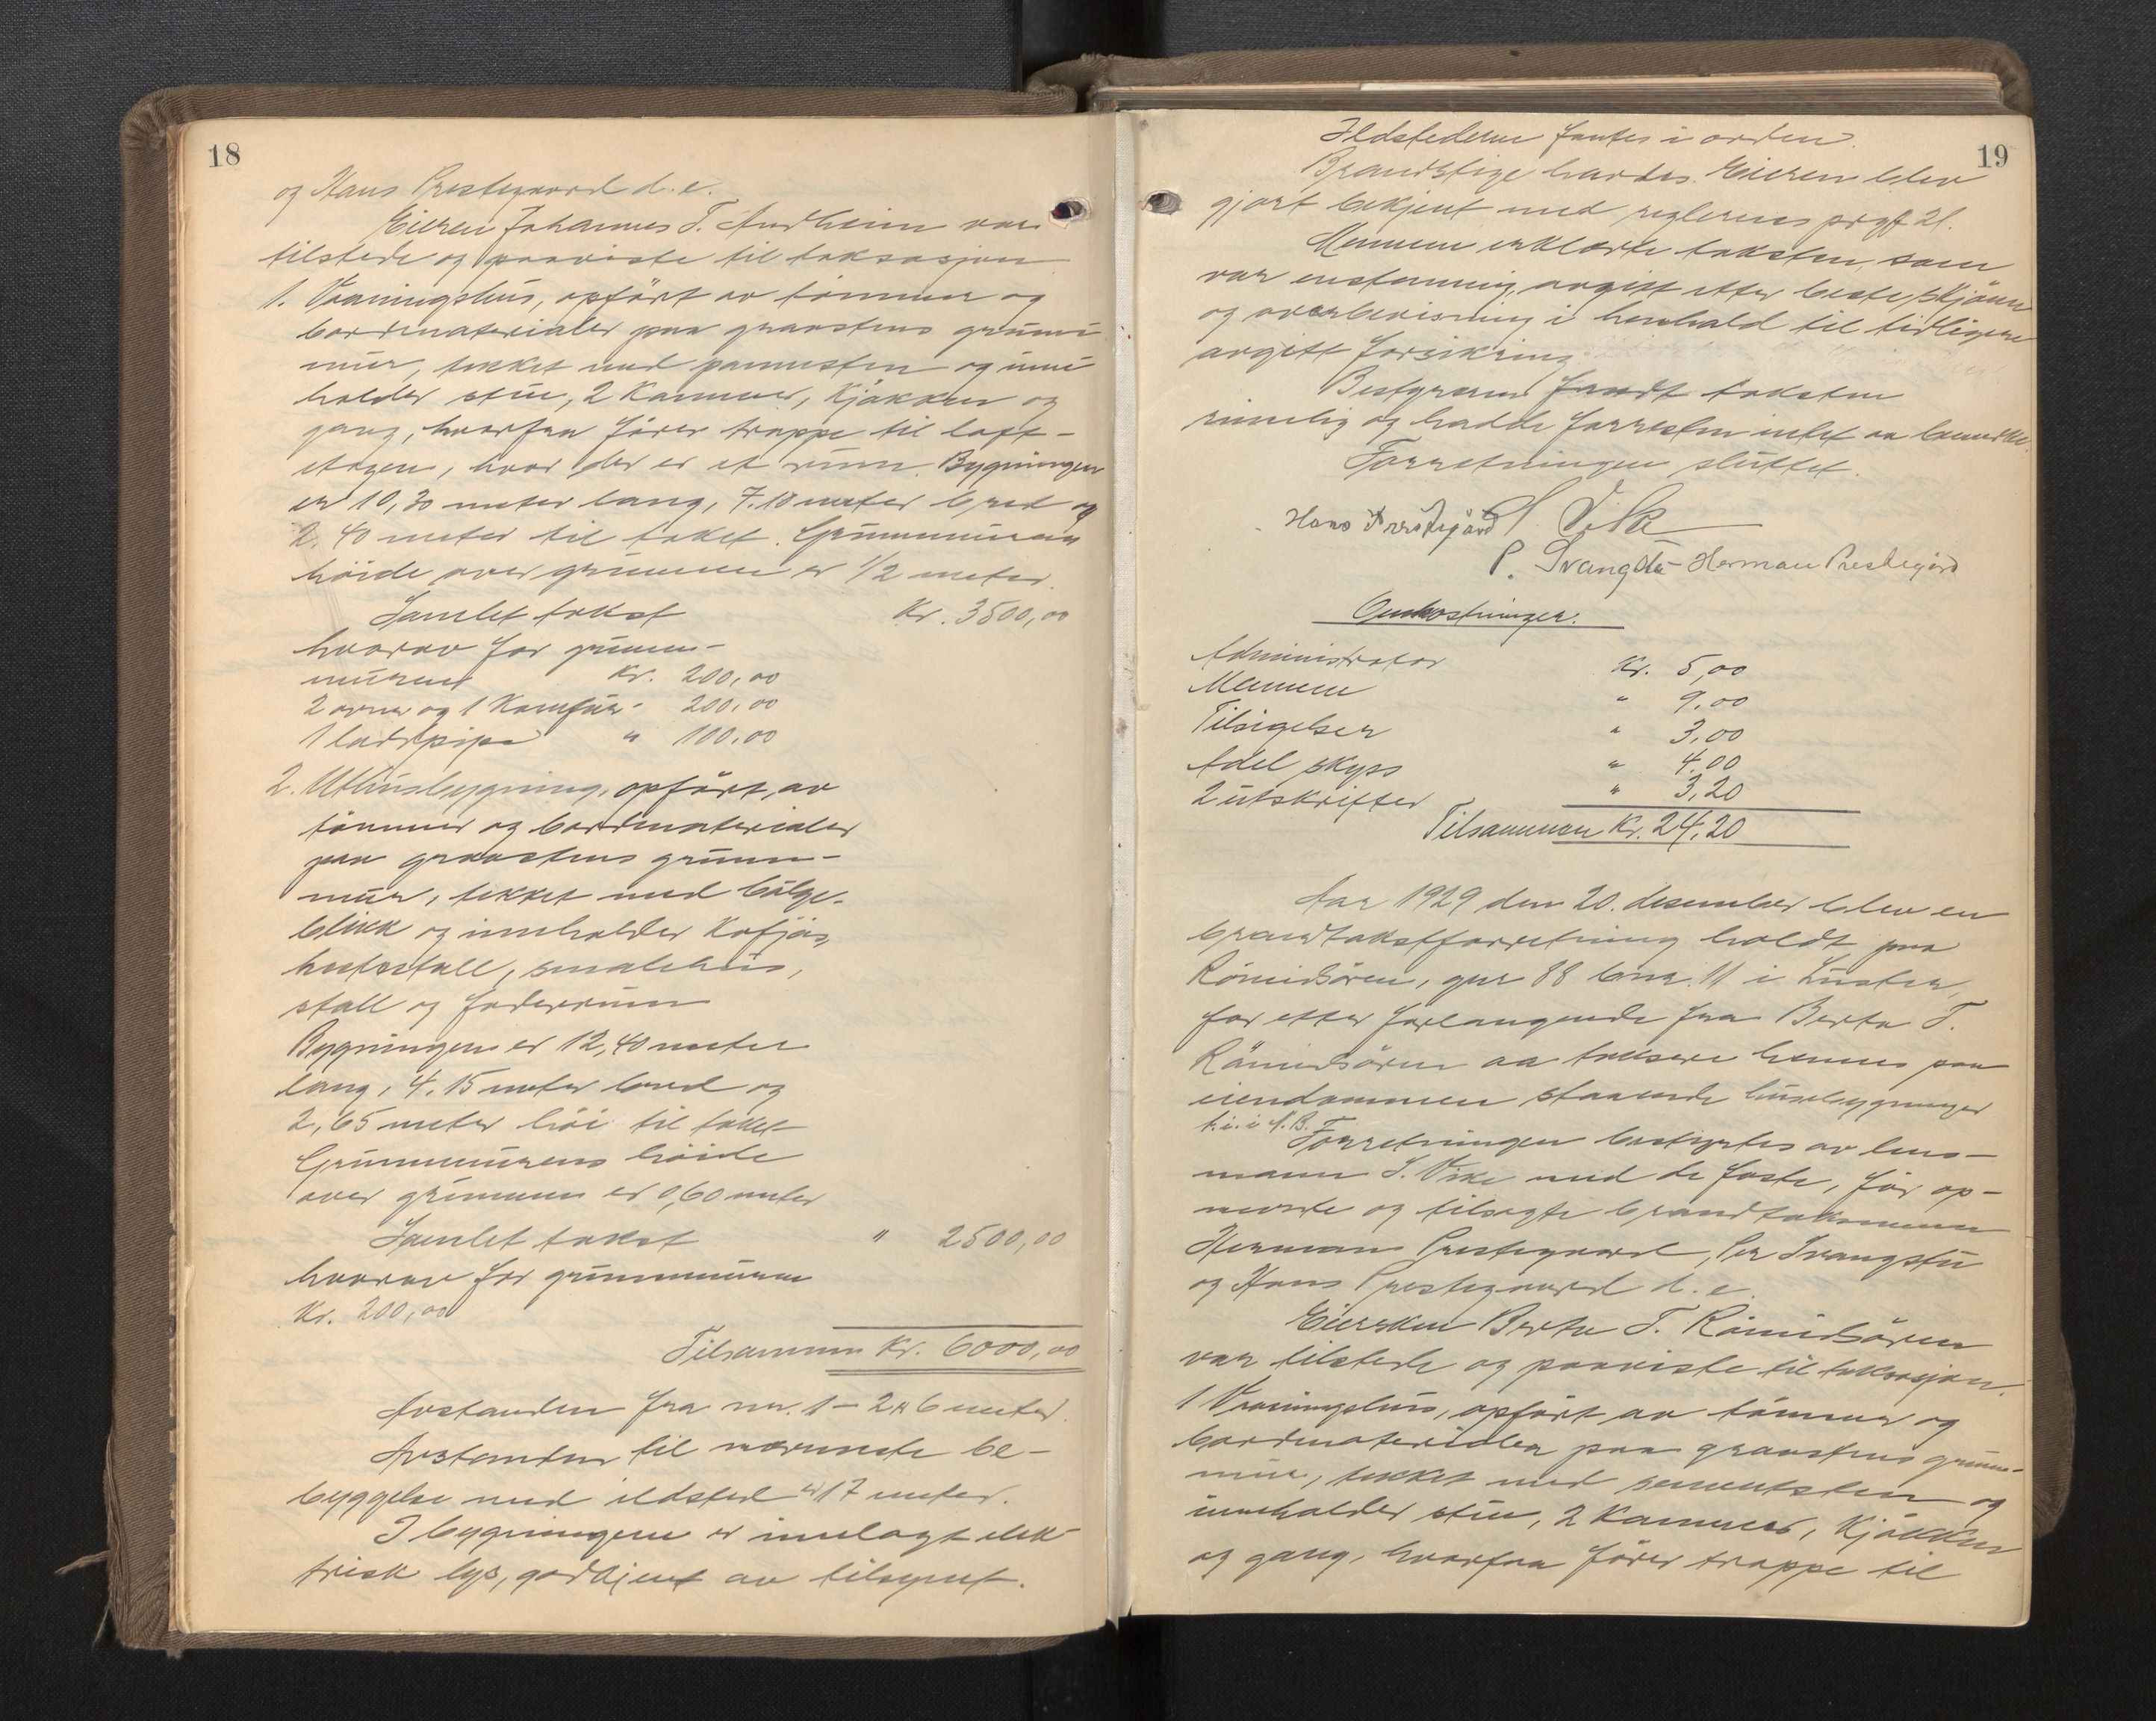 18
og Hans Prestegaard d. e.
Eieren Johannes T. Andheim var
tilstede og paaviste til taksasjon
1. Vaaningshus, opført av tömmer og
bordmaterialer paa graastens grunn-
mur, tekket med pannesten og inne
holder stue, 2 Kammer, Kjøkken og
gang, hvorfra fører trappe til loft-
etagen, hvor der er et rum. Bygningen
er 10,30 meter lang, 7.10 meter bred og
2,40 meter til taket. Grunnmurens
höide over grunnen er 1/2 meter.
Samlet takst Kr. 3500,00
hvorav for grunn-
muren Kr. 200,00
2 ovner og 1 Komfur - 200,00
1 ladd pipe " 100,00
2. Uthusbygning, opført av
tömmer og bordmaterialer
paa graastens grunn-
mur, tekket med bölge-
blikk og inneholder Kofjös,
hestestall, smalehus,
stall og foderrum
Bygningen er 12,40 meter
lang, 4,15 meter bred og
2,65 meter höi til taket
Grunnmurens höide
over grunnen er 0,60 meter
Samlet takst " 2500,00
hvorav for grunnmuren
Kr. 200,00
Tilsammen Kr. 6000,00
Avstanden fra nr. 1 - 2 er 6 meter.
Avstanden til nærmeste be-
byggelse med ildsted er 17 meter.
I bygningene er innlagt elek-
trisk lys, godkjent av tilsynet.
19
Ildstederne fantes i orden.
Brandstige havdes. Eieren blev
gjort bekjent med reglernes prgf 21.
Mennene erklærte taksten, som
var enstemmig, avgitt etter beste skjönn
og overbevisning i henhold til tidligere
avgitt forsikring.
Bestyreren fandt taksten
rimelig og hadde forresten intet aa bemerke.
Forretningen sluttet.
Hans Prestegård S. Vike
P. Svangstu Herman Prestegård
Omkostninger.
Administrator Kr. 5,00
Mennene " 9,00
Tilsigelser " 3,00
Adel skyss " 4,00
2 utskrifter " 3,20
Tilsammen Kr. 24,20
Aar 1929 den 20. desember blev en
brandtakstforretning holdt paa
gnr 88 bnr. 11 i Luster,
for etter forlangende fra Berta T.
aa taksere hennes paa
eiendommen staaende husebygninger
h. i. i S. B.
Forretningen bestyrtes av lens-
mann S. Vike med de faste, för op-
nevnte og tilsagte brandtaksmenn
Herman Prestegaard, Per Svangstu
og Hans Prestegaard d. e.
Eiersken Berta T.
var tilstede og paaviste til taksasjon.
1 Vaaningshus, opført av tömmer og
bordmaterialer paa graastens grunn-
mur, tekket med sementsten og
inneholder stue, 2 Kammers, Kjøkken
og gang, hvorfra fører trappe til